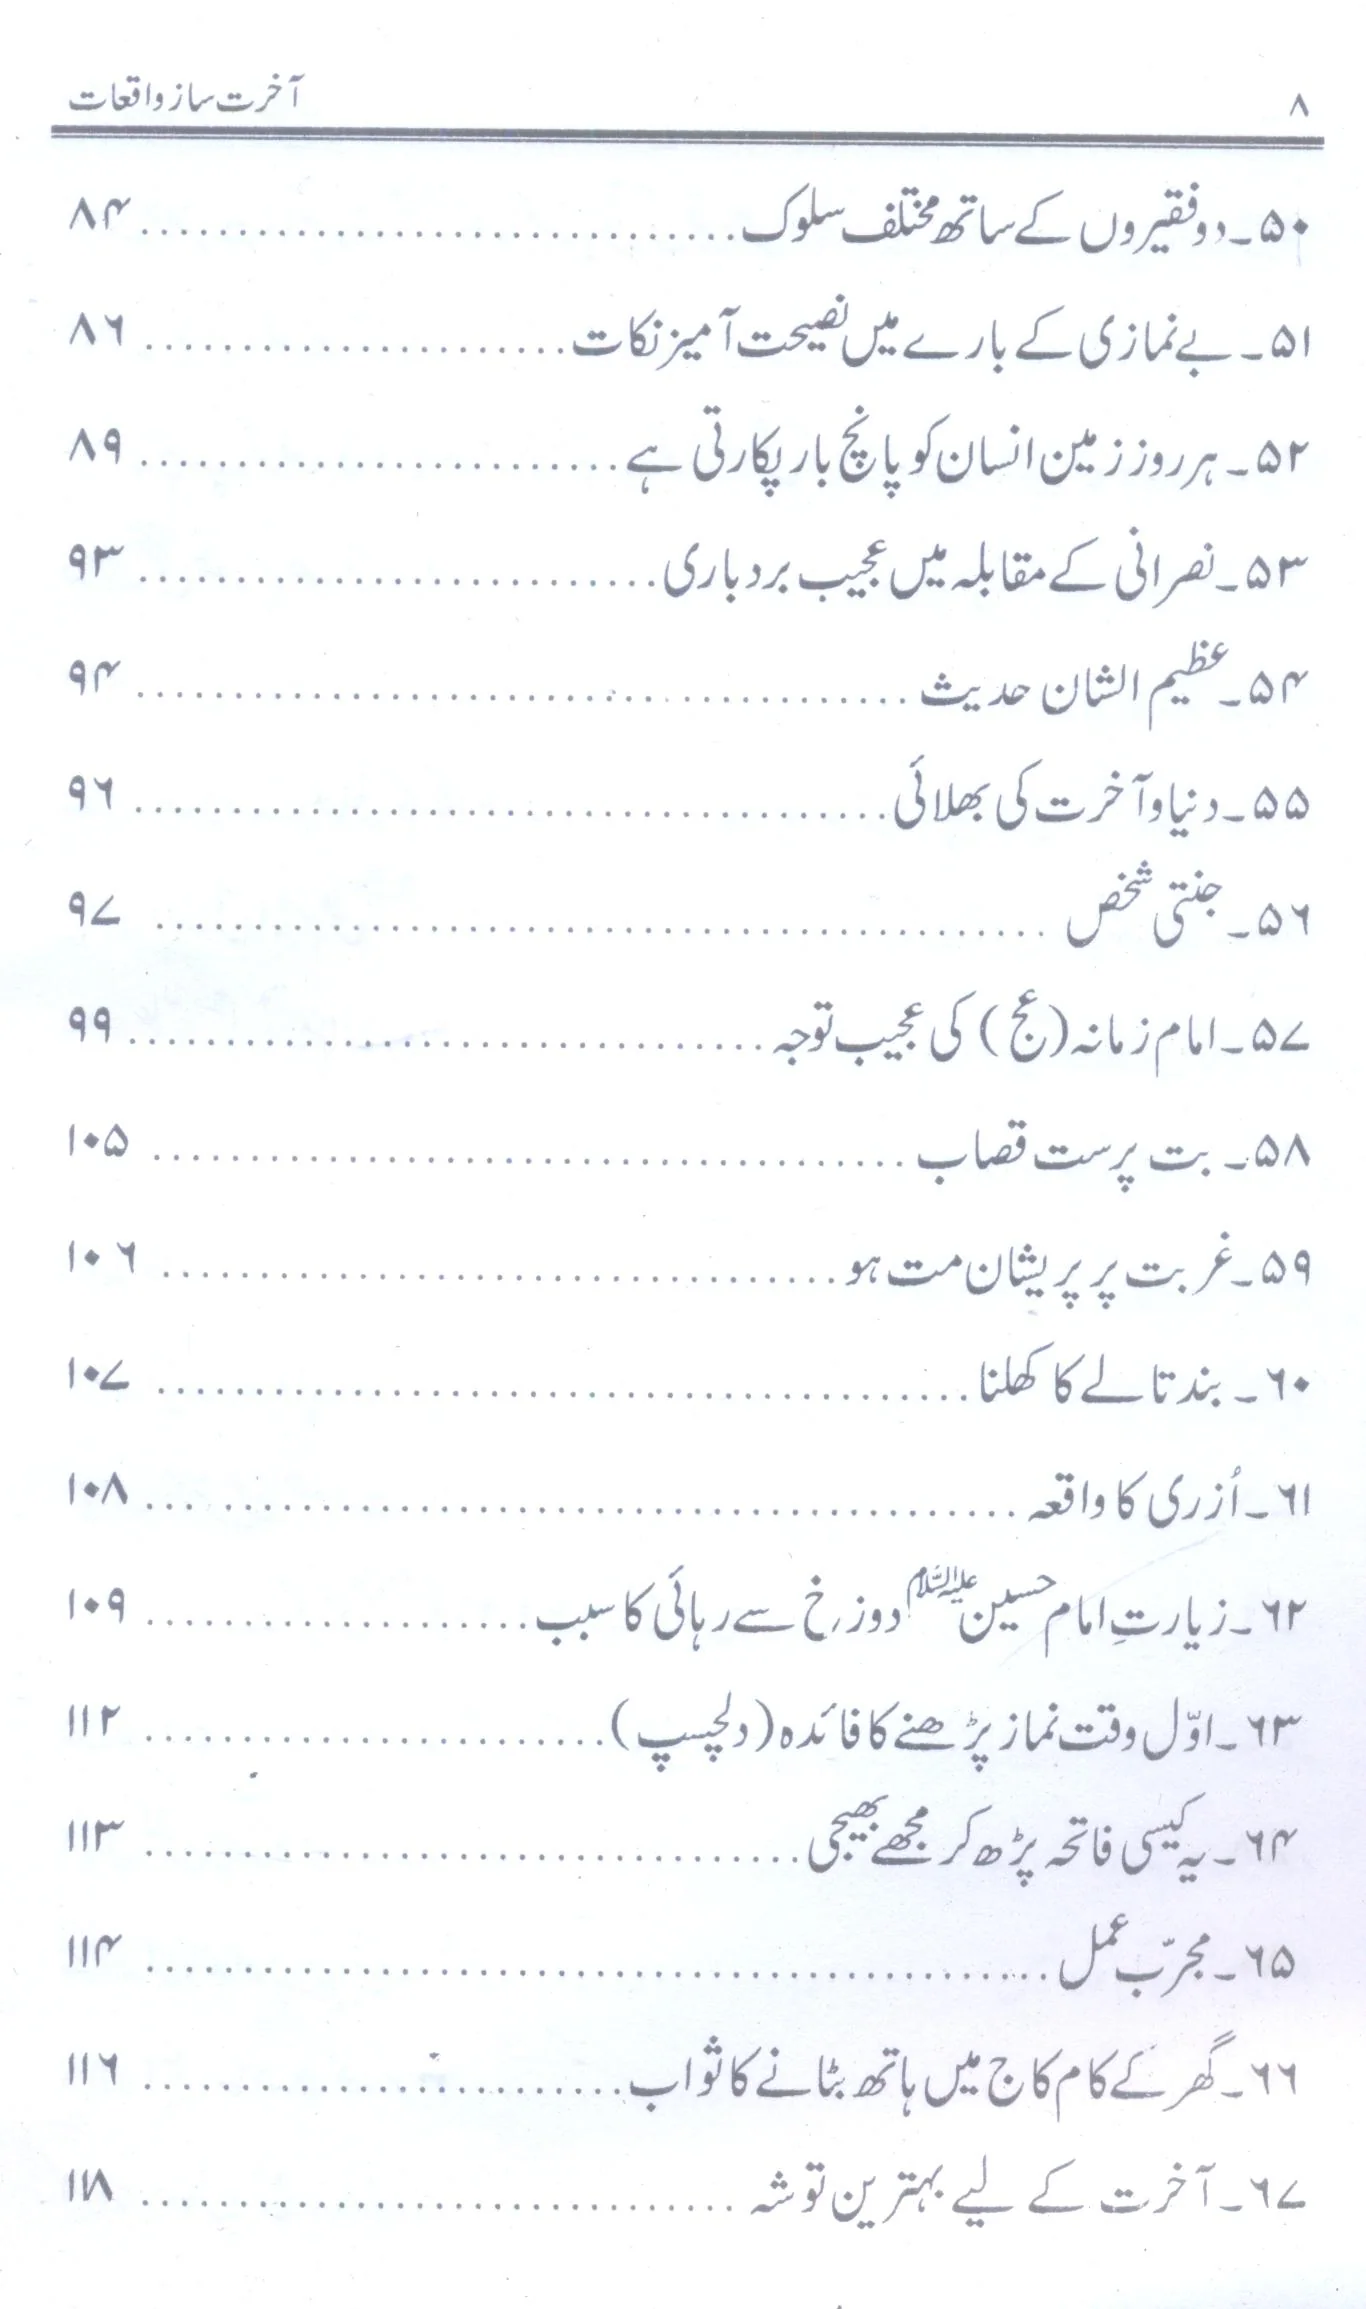 ۸ آخرت ساز واقعات
۵۰۔ دو فقیروں کے ساتھ مختلف سلوک ۸۴
۵۱۔ بے نمازی کے بارے میں نصیحت آمیز نکات ۸۶
۵۲۔ ہر روز زمین انسان کو پانچ بار پکارتی ہے ۸۹
۵۳۔ نصرانی کے مقابلہ میں عجیب بردباری ۹۳
۵۴۔ عظیم الشان حدیث ۹۴
۵۵۔ دنیا و آخرت کی بھلائی ۹۶
۵۶۔ جنتی شخص ۹۷
۵۷۔ امام زمانہ (عج) کی عجیب توجہ ۹۹
۵۸۔ بت پرست قصاب ۱۰۵
۵۹۔ غربت پر پریشان مت ہو ۱۰۶
۶۰۔ بند تالے کا کھلنا ۱۰۷
۶۱۔ اُزری کا واقعہ ۱۰۸
۶۲۔ زیارتِ امام حسین علیہ السّلام دوزخ سے رہائی کا سبب ۱۰۹
۶۳۔ اوّل وقت نماز پڑھنے کا فائدہ (دلچسپ) ۱۱۲
۶۴۔ یہ کیسی فاتحہ پڑھ کر مجھے بھیجی ۱۱۳
۶۵۔ مجرّب عمل ۱۱۴
۶۶۔ گھر کے کام کاج میں ہاتھ بٹانے کا ثواب ۱۱۶
۶۷۔ آخرت کے لیے بہترین توشہ ۱۱۸